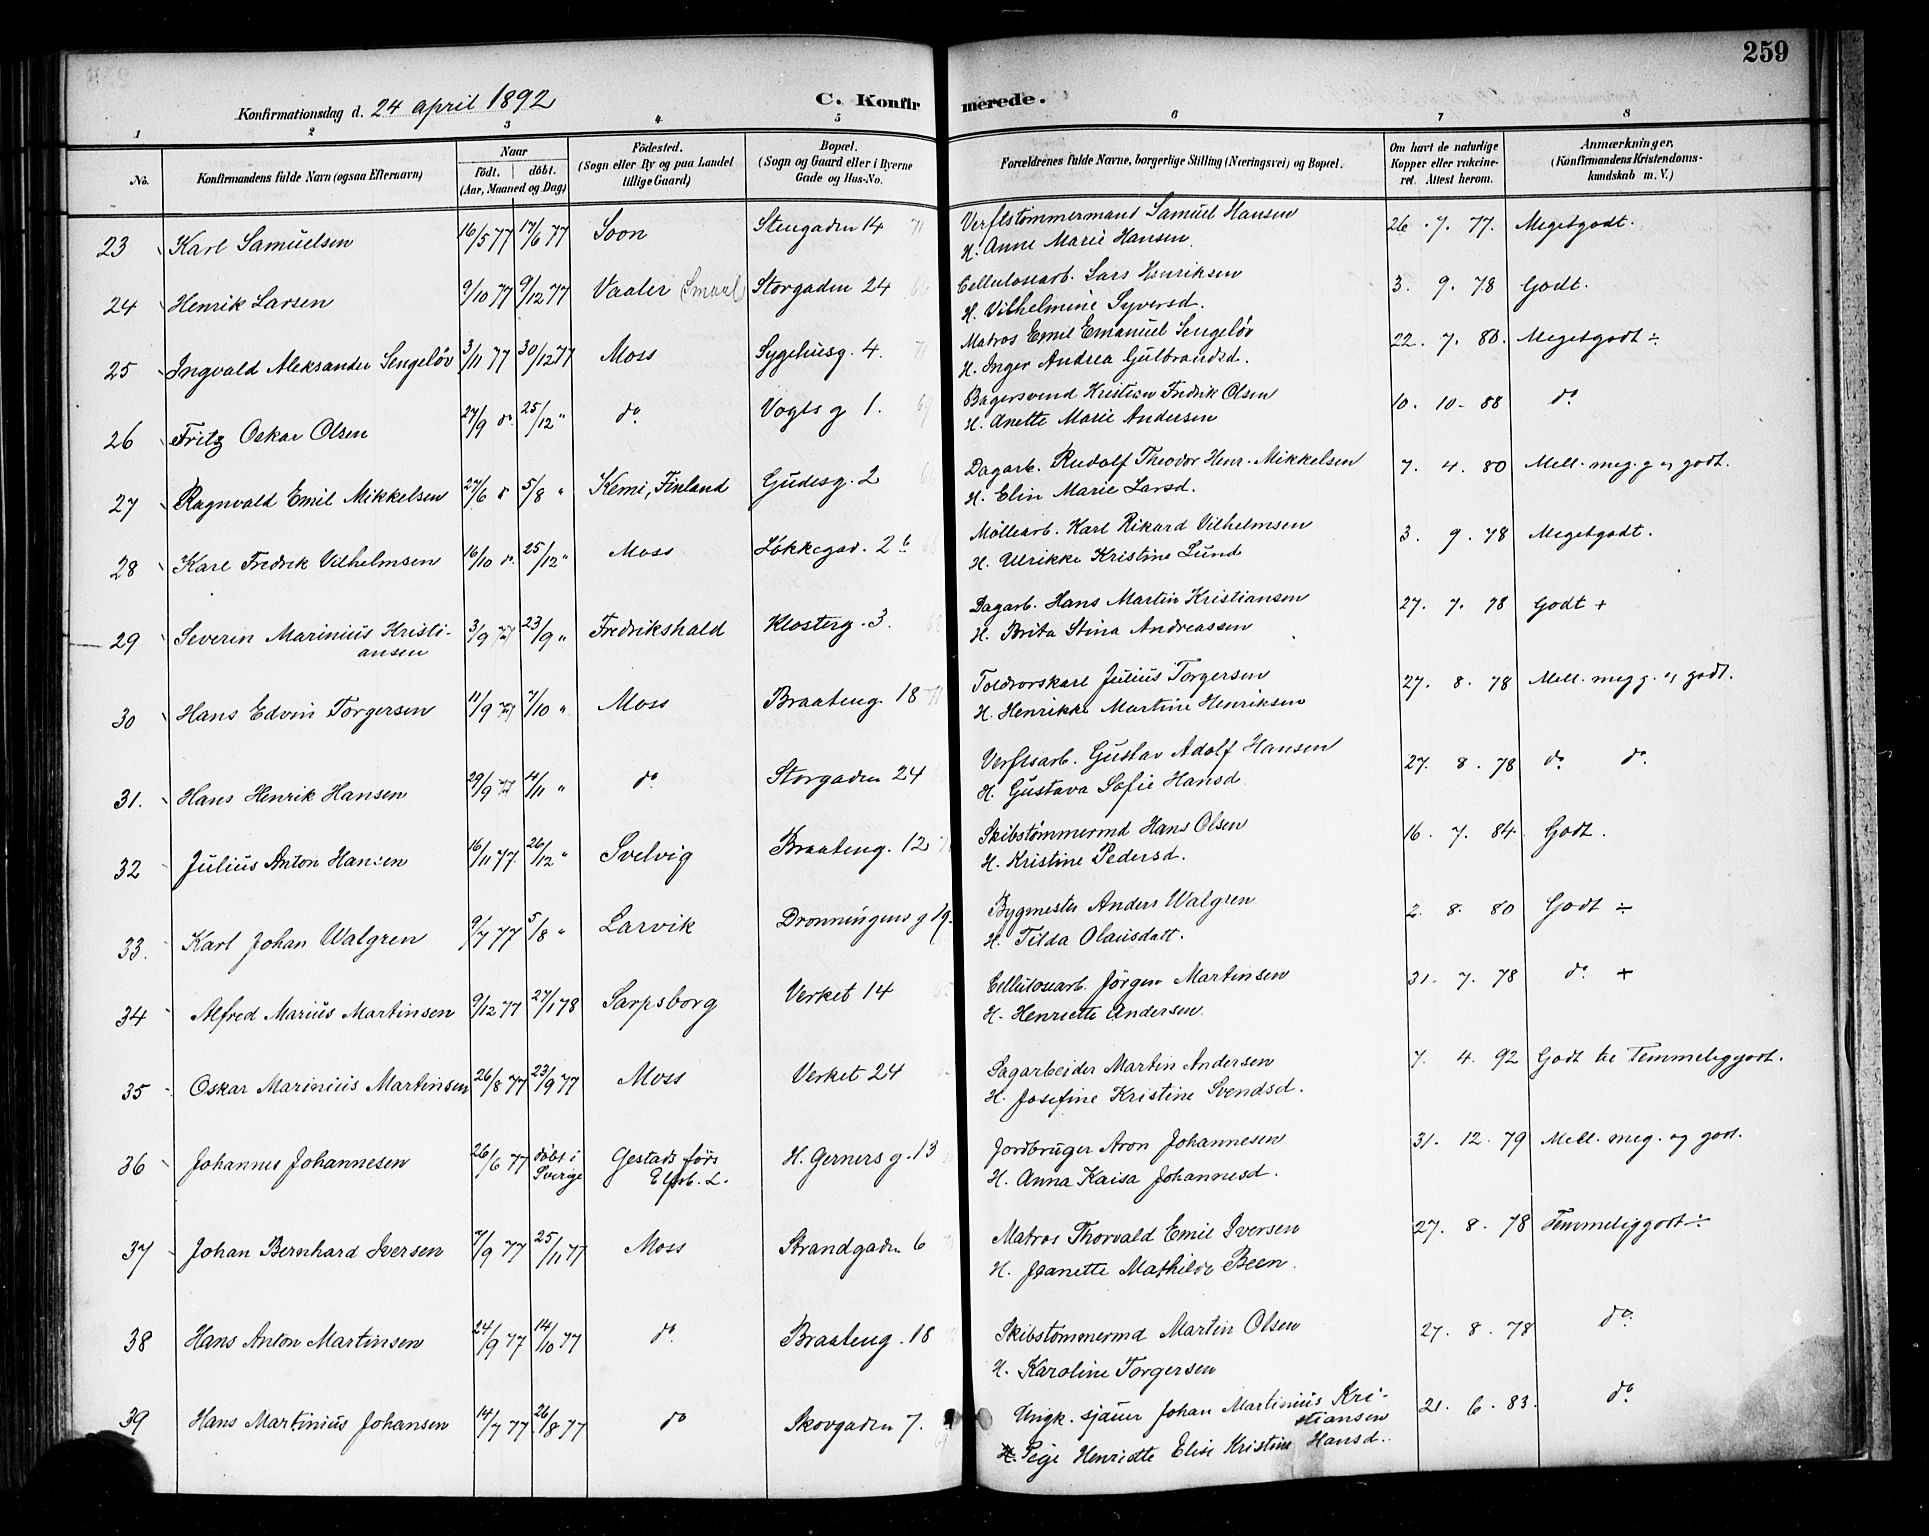 259
Konfirmationsdag d. 24 april 1892
C. Konfirmerede.
1 2 3 4 5 6 7 8
No. Konfirmandens fulde Navn (ogsaa Efternavn) Naar født. døbt. (Aar, Maaned og Dag) Fødested. (Sogn eller By og paa Landet tillige Gaard) Bopæl. (Sogn og Gaard eller i Byerne Gade og Hus-No. Forældrenes fulde Navne, borgerlige Stilling (Næringsvei) og Bopæl. Om havt de naturlige Kopper eller vakcineret. Attest herom. Anmærkninger, (Konfirmandens Kristendomskundskab m. V.)
23 Karl Samuelsen 16/5 77 17/6 77 Soon Stengaden 14 Verftstømmermand Samuel Hansen 26. 7. 77. Megetgodt.
H. Anne Marie Hansen.
24 Henrik Larsen 9/10 77 9/12 77 Vaaler (Smaal) Storgaden 24 Cellulosearb. Lars Henriksen 3. 9. 78 Godt.
H. Vilhelmine Syversd.
25 Ingvald Aleksander Sengeløv 3/11 77 30/12 77 Moss Sygehusg. 4. Matros Emil Emanuel Sengeløv 22. 7. 80. Megetgodt ÷
H. Inger Andrea Gulbrandsd.
26 Fritz Oskar Olsen 27/9 do 25/12 " do Vogts g 1. Bagersvend Kristian Fredrik Olsen 10. 10. 88 do
H. Anette Marie Andersen
27 Ragnvald Emil Mikkelsen 27/6 do 5/8 " Kemi, Finland Gudesg. 2 Dagarb. Rudolf Theodor Henr. Mikkelsen 7. 4. 80 Mell. meg. g og godt.
H. Elin Marie Larsd.
28 Karl Fredrik Vilhelmsen 16/10 do. 25/12 " Moss Løkkegad. 2 b Møllearb. Karl Rikard Vilhelmsen 3. 9. 78 Megetgodt.
H. Ulrikke Kristine Lund
29 Severin Marinius Kristiansen 3/9 77 23/9 " Fredrikshald Klosterg. 3. Dagarb. Hans Martin Kristiansen 27. 7. 78 Godt +
H. Brita Stina Andreassen
30 Hans Edvin Torgersen 11/9 77 7/10 " Moss Braateng. 18 Toldrorskarl Julius Torgersen 27. 8. 78 Mell. meg g. og godt.
H. Henrikke Martine Henriksen
31. Hans Henrik Hansen 29/9 77 4/11 " do Storgaden 24 Verftsarb. Gustav Adolf Hansen 27. 8. 78 do. do.
H. Gustava Sofie Hansd
32 Julius Anton Hansen 16/11 77. 26/12 " Svelvig Braateng. 12 Skibstømmermd Hans Olsen 16. 7. 84. Godt.
H. Kristine Pedersd.
33. Karl Johan Walgren 9/7 77 5/8 " Larvik Dronningens g 19. Bygmester Anders Walgren 2. 8. 80 Godt ÷
H. Tilda Olausdatt.
34 Alfred Marius Martinsen 9/12 77 27/1 78 Sarpsborg Verket 14 Cellulosearb. Jørgen Martinsen 31. 7. 78 do. +
H. Henriette Andersen.
35 Oskar Marinius Martinsen 26/8 77 23/9 77 Moss Verket 24 Sagarbeider Martin Andersen 7. 4. 92 Godt til Temmeliggodt.
H. Josefine Kristine Svendsd.
36 Johannes Johannesen 26/6 77 døbt i Sverige Gestads førs Elfsb. L. H. Gerners g. 13 Jordbruger Aron Johannesen 31. 12. 79 Mell. meg. og god.
H. Anna Kaisa Johannesd.
37 Johan Bernhard Iversen 7/9 77 25/11 77 Moss Strandgaden 6 Matros Thorvald Emil Iversen 27. 8. 78 Temmeliggodt ÷
H. Jeanette Mathilde Been.
38 Hans Anton Martinsen 24/9 77 14/10 77 do. Braateng. 18 Skibstømmermd Martin Olsen 27. 8. 78 do.
H. Karoline Torgersen
39 Hans Martinius Johansen 14/7 77 26/8 77 do Skovgaden 7. Ungk. sjauer Johan Martinius Kristiansen 21. 6. 83. do.
Pige Henriette Elise Kristine Hansd.